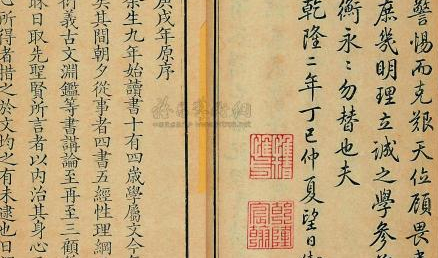 警惕而克艱天位顧畏
庶幾明理立誠之學參
衡永〻勿替也夫
乾隆二年丁巳仲夏望日御
庚戌年原序
余生九年始讀書十有四歲學屬文今
矣其間朝夕從事者四書五經性理綱
衍義古文淵鑑等書講論至再至三顧
昧日取先聖賢所言者以內治其身心
心所得者措之於文均之有未逮也日